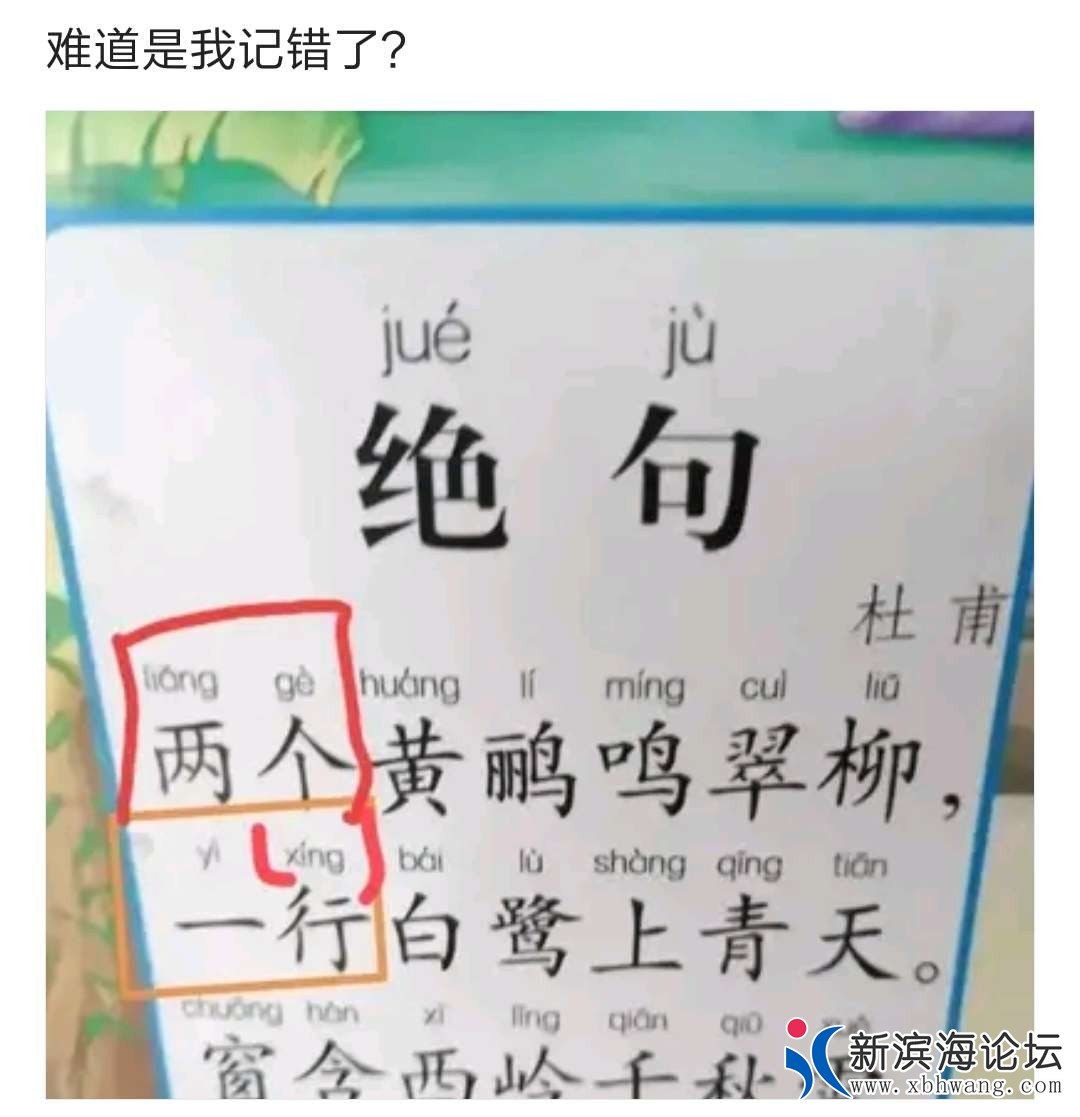 难道是我记错了?
jué jù
绝句
杜甫
liǎng gè huáng lí míng cuì liǔ
两个黄鹂鸣翠柳，
yì xíng bái lù shàng qīng tiān
一行白鹭上青天。
chuāng hán xī lǐng qiān qiū
窗含西岭千秋
新滨海论坛
www.xbhwang.com